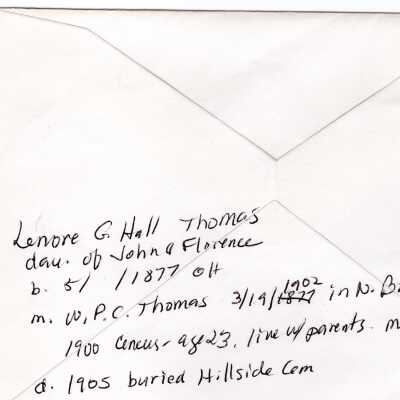 Lenore G. Hall Thomas
dau. of John & Florence
b. 5/ /1877 OH
m. W.P.C. Thomas 3/19/1902 in N. B
1900 Census - age 23, live w/ parents. m
d. 1905 buried Hillside Cem